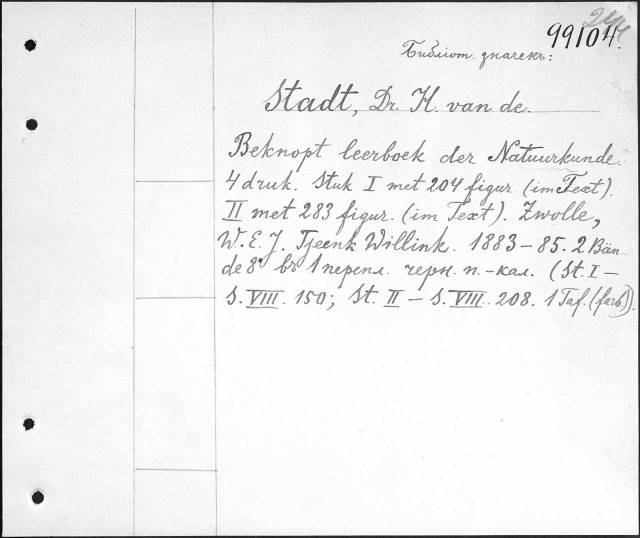 99104.
Библіот. значекъ:
Stadt, Dr. H. van de.
Beknopt leerboek der Natuurkunde.
4 druk. Stuk I met 204 figur. (im Text).
II met 283 figur. (im Text). Zwolle,
W. E. J. Tjeenk Willink. 1883–85. 2 Bän-
de 8° въ 1 перепл. черн. п.-кал. (St. I –
S. VIII. 150; St. II – S. VIII. 208. 1 Taf. (farb.)).